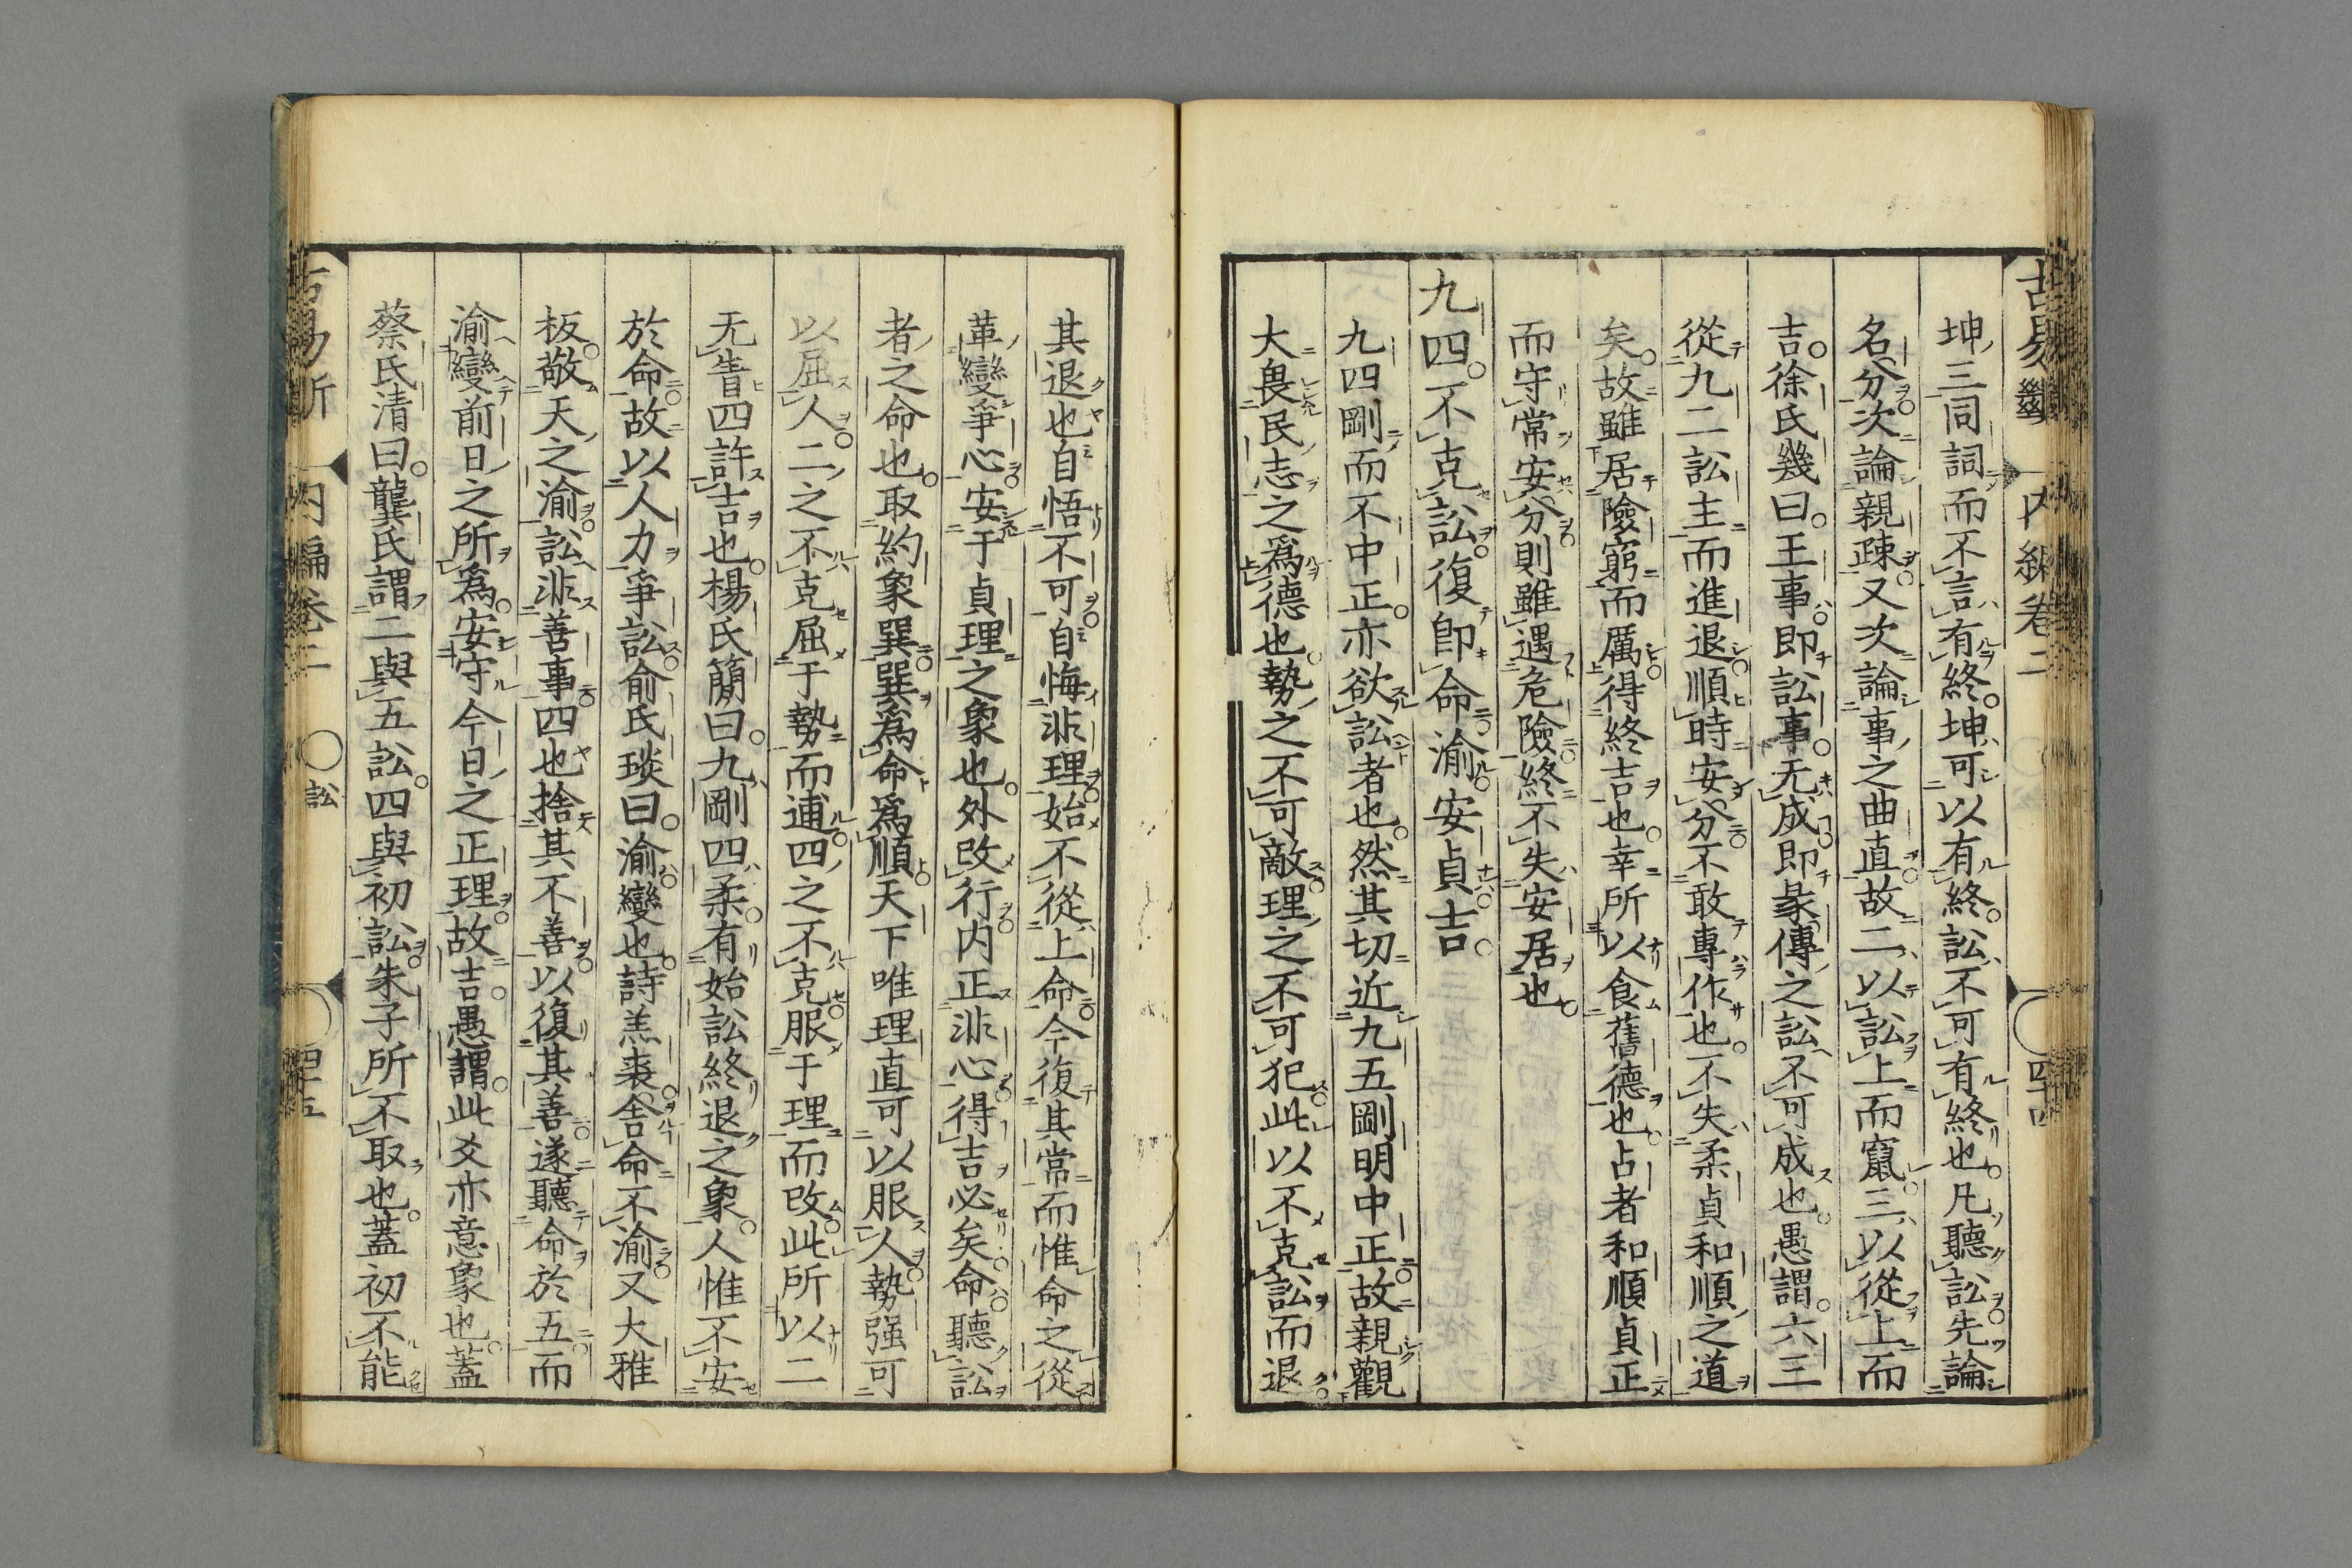 古易斷 内編卷二 四十四
坤三同詞而不言有終坤可以有終訟不可有終也凡聽訟先論
名分次論親疎又次論事之曲直故二以訟上而竄三以從上而
吉徐氏幾曰王事即訟事无成即彖傳之訟不可成也愚謂六三
從九二訟主而進退順時安分不敢專作也不失柔貞和順之道
矣故雖居險窮而厲得終吉也幸所以食舊德也占者和順貞正
而守常安分則雖遇危險終不失安居也
九四不克訟復即命渝安貞吉
九四剛而不中正亦欲訟者也然其切近九五剛明中正故親觀
大畏民志之爲德也勢之不可敵理之不可犯此以不克訟而退
其退也自悟不可自悔非理始不從上命今復其常而惟命之從
革變爭心安于貞理之象也外改行内正非心得吉必矣命聽訟
者之命也取約象巽巽爲命爲順天下唯理直可以服人勢强可
以屈人二之不克屈于勢而逋四之不克服于理而改此所以二
无眚四許吉也楊氏簡曰九剛四柔有始訟終退之象人惟不安
於命故以人力爭訟俞氏琰曰渝變也詩羔裘舍命不渝又大雅
板敬天之渝訟非善事四也捨其不善以復其善遂聽命於五而
渝變前日之所爲安守今日之正理故吉愚謂此爻亦意象也蓋
蔡氏清曰龔氏謂二與五訟四與初訟朱子所不取也蓋初不能
古易斷 内編卷二 訟 四十五